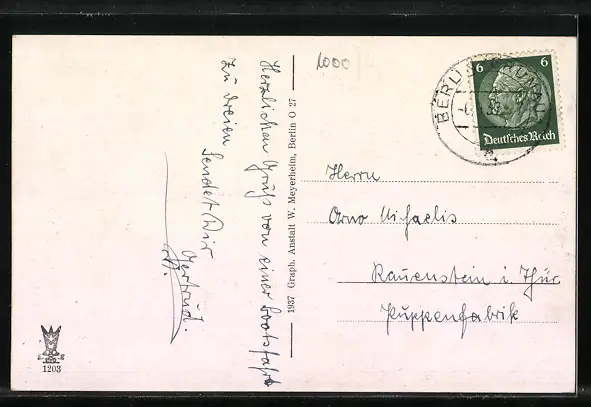 1000
Herzlichen Gruß von einer Bootsfahrt
zu dreien
Sendet Dir
Gertrud.
1937 Graph. Anstalt W. Meyerheim, Berlin O 27
6 6
Deutsches Reich
BERLIN-GRÜNAU
Herrn
Arno Michaelis
Rauenstein i. Thür.
Puppenfabrik
1203